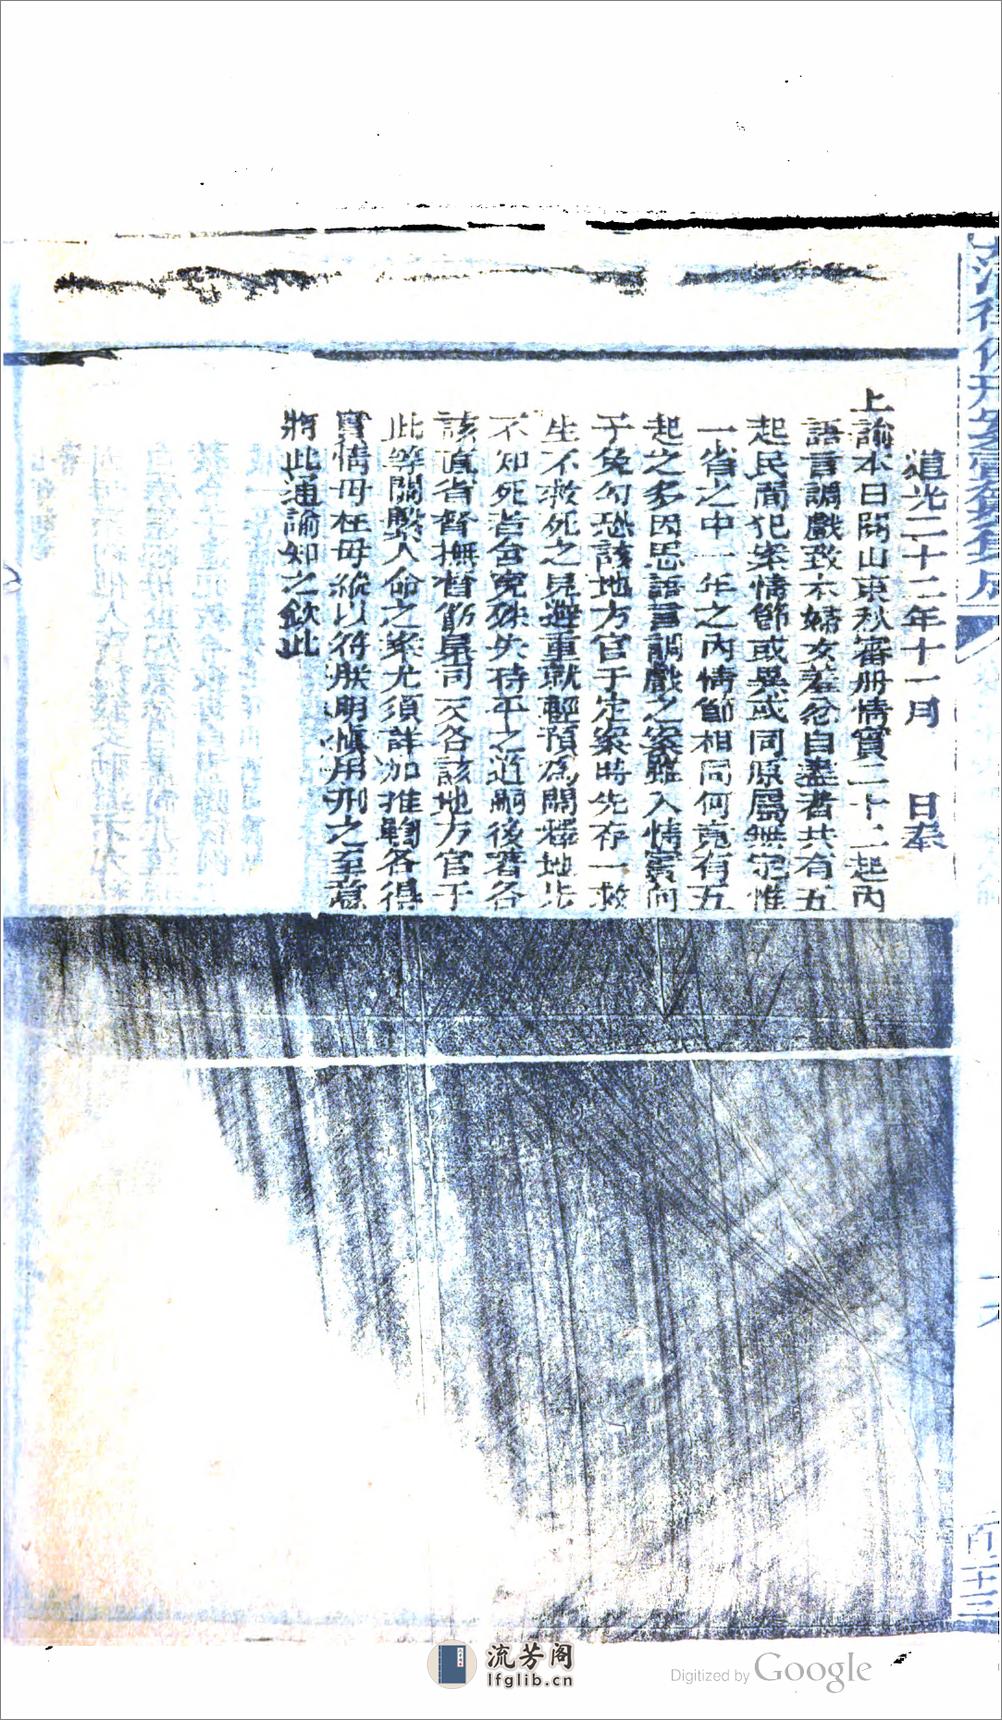 道光二十二年十一月 日奉
上諭本日閱山東秋審册情實二十二起內
語言調戲致本婦女羞忿自盡者共有五
起民間犯案情節或異或同原屬無定惟
一省之中一年之內情節相同何竟有五
起之多因思語言調戲之案雖入情實向
予免勾恐該地方官于定案時先存一救
生不救死之見避重就輕預爲開釋地步
不知死者含寃殊失持平之道嗣後著各
該直省督撫督飭臬司及各該地方官于
此等關繫人命之案尤須詳加推鞫各得
實情毋枉毋縱以符朕明愼用刑之至意
將此通諭知之欽此
百二十三
流芳阁
lfglib.cn
Digitized by Google